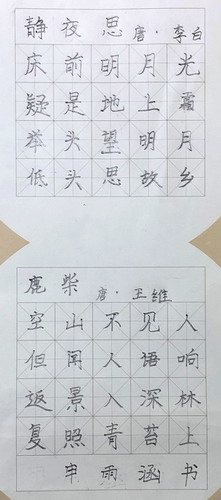 静夜思 唐·李白
床前明月光
疑是地上霜
举头望明月
低头思故乡
鹿柴 唐·王维
空山不见人
但闻人语响
返景入深林
复照青苔上
申雨涵书